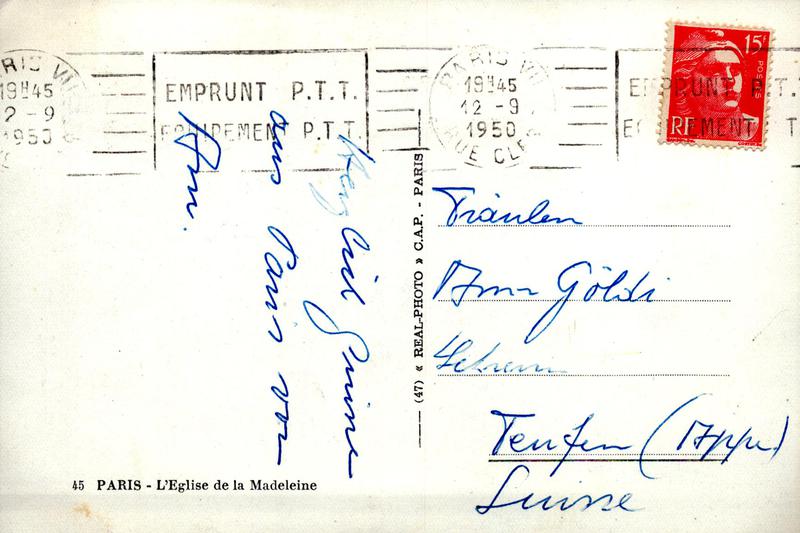 PARIS VII
19H45
12 - 9
1950
EMPRUNT P.T.T.
EQUIPEMENT P.T.T.
PARIS VII
19H45
12 - 9
1950
RUE CLER
EMPRUNT P.T.
EQUIPEMENT P.T.
15F
POSTES
RF
Herzlich Grüsse
aus Paris von
(47) « REAL-PHOTO » C.A.P. - PARIS
Fräulein
Göldi
Teufen (Appz)
Suisse
45 PARIS - L'Eglise de la Madeleine